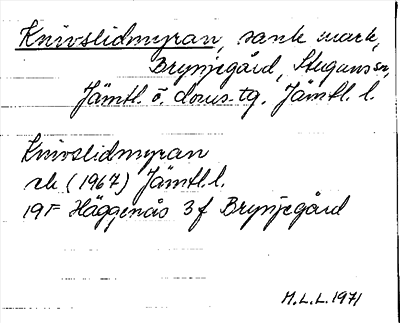 Knivslidmyran, sank mark,
Brynjegård, Stuguns sn,
Jämtl. ö. doms. tg. Jämtl. l.
Knivslidmyran
ek (1967) Jämtl.l.
19F Häggenås 3f Brynjegård
M.L.L. 1971